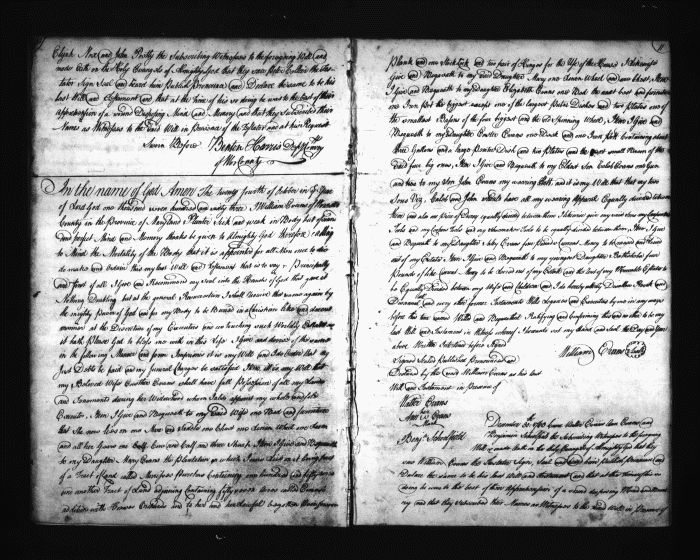 Elijah Nox and John Prettly the Subscribing Witnesses to the foregoing Will and
made Oath on the Holy Evangels of Almighty God that they were present and saw the Tes
tator Sign Seal and heard him Publish Pronounce and Declare the same to be his
last Will and Testament and that at the time of his so doing he was to the best of their
apprehension of a sound Disposing Mind and Memory and that they Subscribed their
Names as Witnesses to the said Will in Presence of the Testator and at his Request
Sworn Before Benton Harris Depty Comry
of Wor County
In the name of God Amen The twenty fourth of October in ye Year
of Our Lord God one thousand seven hundred and sixty three I William Evans of Worcester
County in the Province of Maryland Planter Sick and weak in Body but of sound
and perfect Mind and Memory thanks be given to Almighty God therefor calling
to Mind the Mortality of the Body that it is appointed for all Men once to die
do make and ordain this my last Will and Testament that is to say Principally
and first of all I give and Recommend my Soul into the Hands of God that gave it
Nothing Doubting but at the general Resurrection I shall receive the same again by
the mighty Power of God and for my Body to be Buried in a christian like and decent
manner at the Discretion of my Executors and as touching such Worldly Estate
it hath pleased God to bless me with in this life I give and dispose of the same
in the following Manner and form Imprimis it is my Will and I do order that my
Just Debts be paid and my funeral Charges be satisfied Item it is my Will that
my Beloved Wife Comfort Evans shall have full Possession of all my Lands
and Tenements during her Widowhood whom I also appoint my whole and sole
Executor Item I give and Bequeath to my said Wife one Bed and furniture
that She now lies on one Mare and Saddle one Chest one
and all her Gowns one Calf Cow and Calf and three Sheep Item I give and Bequeath
to my Daughter Mary Evans the Plantation on which I now live it being part
of a Tract of Land called containing one hundred and fifty acres
one another Tract of Land adjoining Containing fifty acres called
and to her and her lawful begotten
11
Plank and one Stock Lock and two pair of Hinges for the Use of the House
Give and Bequeath to my said Daughter Mary one Linen Wheel and one Chest Item I
Give and Bequeath to my Daughter Elizabeth Evans one Bed the next best and furniture
one Iron Pot the biggest except one of the largest Puter Dishes and two plates one of
the smallest Basons of the four biggest and the Spinning Wheel Item I give and
Bequeath to my Daughter Easter Evans one Desk and one Iron Pott Containing about
three Gallons and large Puter Dish and two Plates and the small Bason of the
said four big ones Item I give and Bequeath to my Eldest Son Caleb Evans one Gun
and also to my Son John Evans my wearing Cloths and it is my Will that my two
Sons Viz Caleb and John should have all my wearing Apparel Equally divided between
them and also one piece of equally divided between them Likewise give my
Tools and my Coopers Tools and my Shoemakers Tools to be equally divided between them Item I give
and Bequeath to my Daughter Evans four pounds Current Money to be raised and Levied
out of my Estate Item I give and Bequeath to my youngest Daughter Bathsheba four
Pounds of like Current Money to be Levied out of my Estate and the rest of my Moveable Estate to
be Equally Divided between my Wife and Children and I do hereby utterly Disallow Revoke and
Disannul and every other former Testaments Wills Legacies and Executors by me in any ways
before this time named Willed and Bequeathed Ratifying and Confirming this and no other to be my
last Will and Testament in Witness whereof I hereunto set my Hand and Seal the Day and year
above Written Interlined before Signed
William Evans Seal
Signed Sealed Published Pronounced and
Declared by the said William Evans as his last
Will and Testament in Presence of
Walter Evans
Ann Evans
Mark
Benja Scholfield
December 30th 1763 Came Walter Evans Ann Evans and
Benjamin Scholfield the Subscribing Witnesses to the foregoing
Will and made Oath on the Holy Evangels of Almighty God that they
saw William Evans the Testator Sign Seal and heard him Publish Pronounce and
Declare the same to be his last Will and Testament and that at the time of his so
doing he was to the best of their Apprehension of a sound disposing Mind and Memo
ry and that they Subscribed their Names as Witnesses to the said Will in Presence of